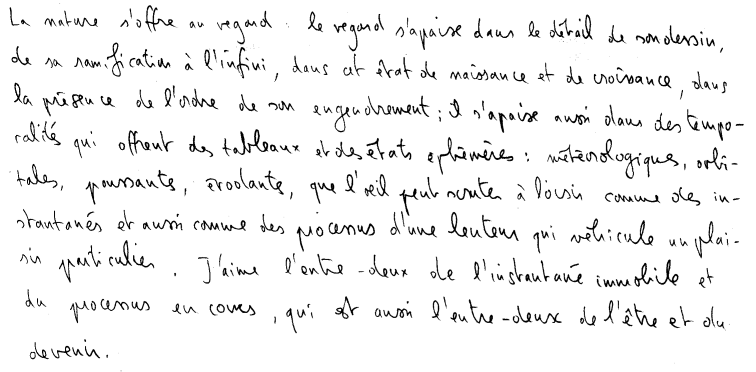 La nature s'offre au regard : le regard s'apaise dans le détail de son dessin,
de sa ramification à l'infini, dans cet état de naissance et de croissance, dans
la présence de l'ordre de son engendrement ; il s'apaise aussi dans des tempo-
ralités qui offrent des tableaux et des états éphémères : météorologiques, orbi-
tales, poussants, érodants, que l'œil peut scruter à loisir comme des in-
stantanés et aussi comme des processus d'une lenteur qui véhicule un plai-
sir particulier. J'aime l'entre-deux de l'instantané immobile et
du processus en cours, qui est aussi l'entre-deux de l'être et du
devenir.